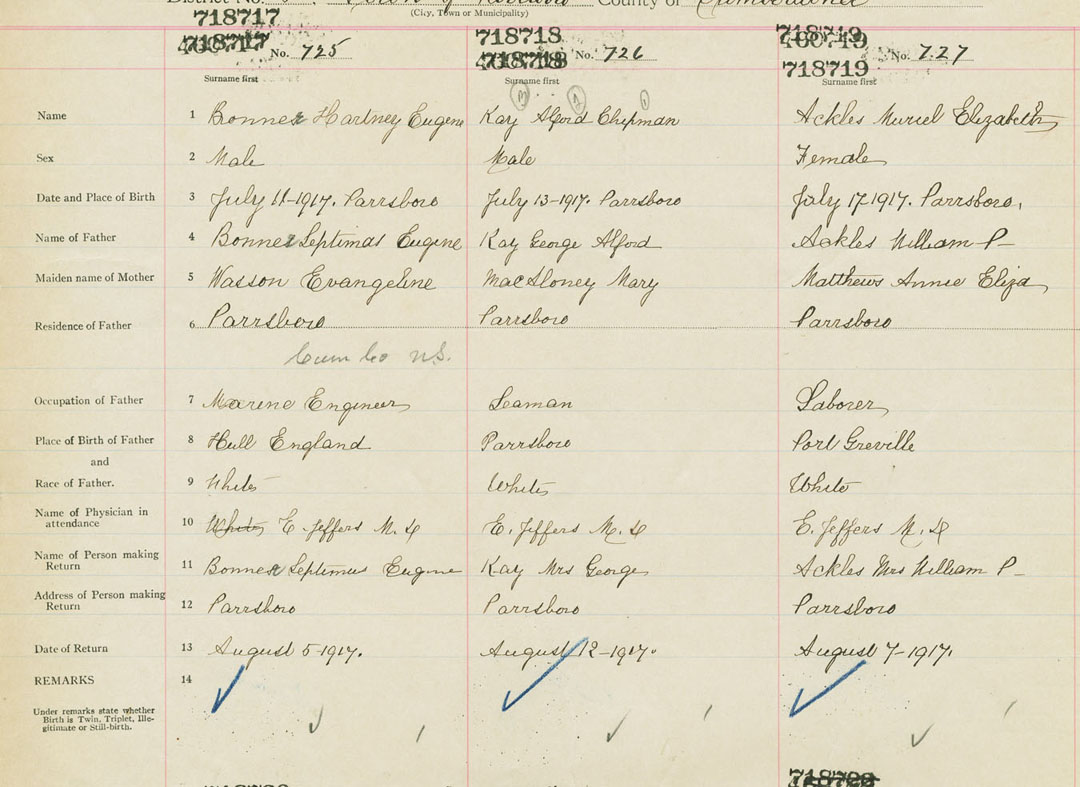 District No. Town of County of Cumberland
(City, Town or Municipality)
718717 718718 718719
No. 725 No. 726 No. 727
718719
Surname first Surname first Surname first
Name 1 Bonner Hartney Eugene Kay Alford Chipman Ackles Muriel Elizabeth
Sex 2 Male Male Female
Date and Place of Birth 3 July 11-1917. Parrsboro July 13-1917. Parrsboro July 17 1917. Parrsboro.
Name of Father 4 Bonner Septimas Eugene Kay George Alford Ackles William P-
Maiden name of Mother 5 Wasson Evangeline MacAloney Mary Matthews Annie Eliza
Residence of Father 6 Parrsboro Parrsboro Parrsboro
Cum Co N.S.
Occupation of Father 7 Marene Engineer Seaman Laborer
Place of Birth of Father 8 Hull England Parrsboro Port Greville
and
Race of Father. 9 White White White
Name of Physician in
attendance 10 White E Jeffers M.D E. Jeffers M.D E. Jeffers M.D
Name of Person making
Return 11 Bonner Septimus Eugene Kay Mrs George Ackles Mrs William P-
Address of Person making
Return 12 Parrsboro Parrsboro Parrsboro
Date of Return 13 August 5-1917. August 12-1917. August 7-1917.
REMARKS 14
Under remarks state whether
Birth is Twin, Triplet, Ille-
gitimate or Still-birth.